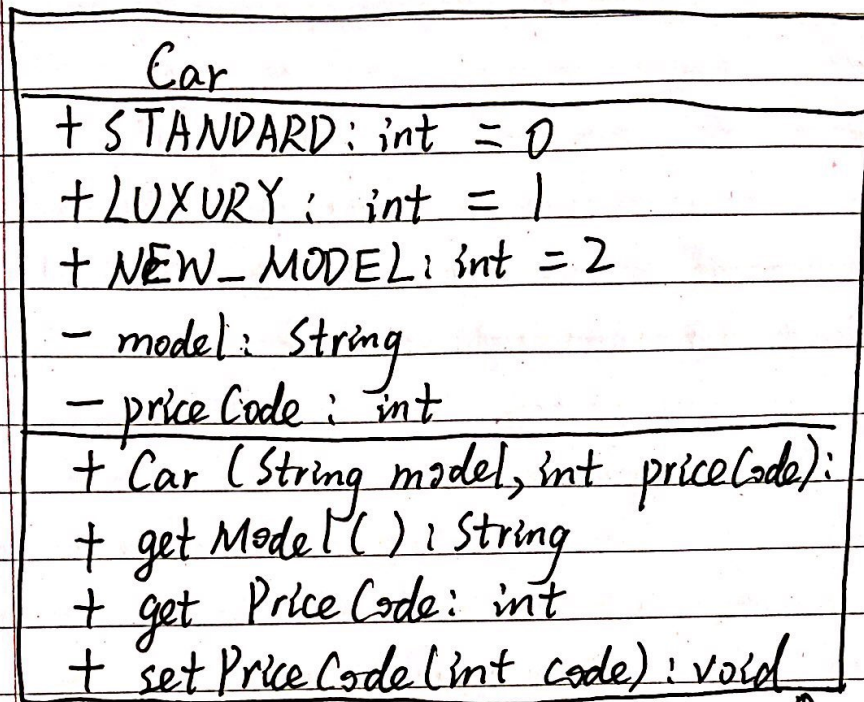 Car
+ STANDARD: int = 0
+ LUXURY: int = 1
+ NEW_MODEL: int = 2
- model: String
- priceCode: int
+ Car (String model, int priceCode):
+ getModel(): String
+ get PriceCode: int
+ setPriceCode(int code): void